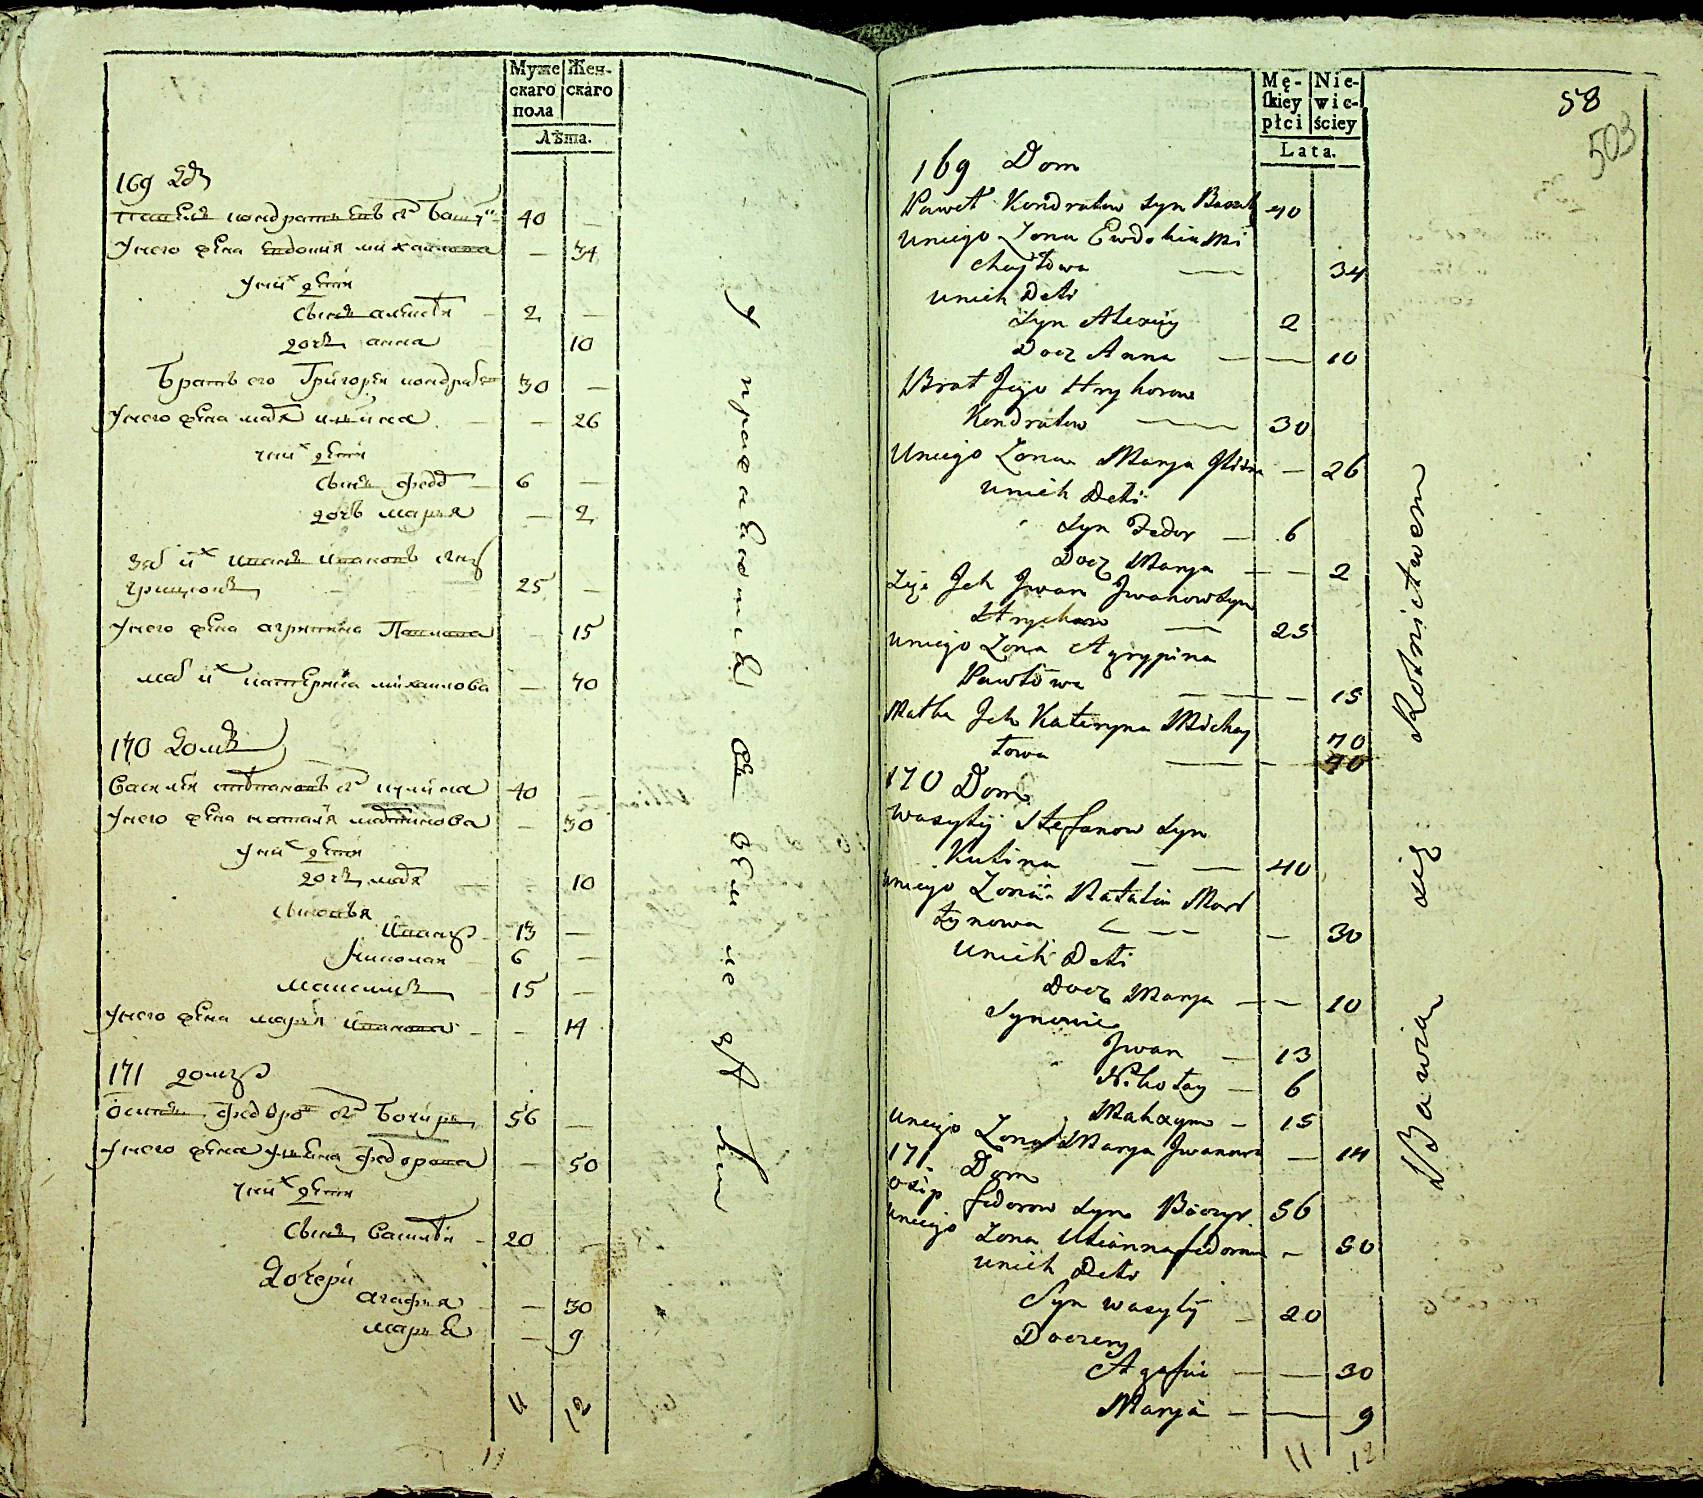 Муже
скаго
пола
Жен-
скаго
Лѣта.
169 дом
40
У него жена Евдокия Михаилова — 34
у них дети
сын алексеи 2 —
дочь анна 10
Брат его Григореи кондратев 30 —
У него жена — 26
у них дети
сын федор 6 —
дочь марья — 2
зят их иван иванов сын
25 —
У него жена агрипина Павлова 15
мать их катерина михаилова — 70
170 домъ
Василеи степанов сын кулина 40 —
У него жена наталя мартинова — 30
у них дети
дочь 10
сыновья
Иван 13 —
Николаи 6 —
Максимъ 15 —
У него жена марья иванова — 14
171 домъ
Осип федоров сын Бочир 56 —
У него жена ульяна федорова — 50
у них дети
сын Василеи 20
Дочери
агафья — 30
марья — 9
11 12
Mę-
ſkiey
płci
Nie-
wie-
ściey
Lata.
58
503
169 Dom
Paweł Kondratow syn 40
Uniego Zona Ewdokia Mi
chayłowa — 34
Unich Deti
Syn Alexiey 2
Docz Anna — — 10
Brat Jego Hryhorow
Kondratow — 30
Uniego Zona Marya — 26
Unich Deti
Syn Fedor — 6
Docz Marya — — 2
Zię Jch Jwan Jwanow syn
25
Uniego Zona Agrypina
Pawłowa — — 15
Matka Jch Kateryna Michay
łowa — — 70
170 Dom
Wasyłÿ Stefanow syn
Kulina — — 40
Uniego Zona Natalia Mar
tynowa — — 30
Unich Deti
Docz Marya — — 10
Synowie
Jwan — 13
Nikołay — 6
Maxym — 15
Uniego Zona Marya Jwanowa — 14
171 Dom
Osip fedorow syn Boczyr 56
Uniego Zona Ulianna fedorowa — 50
Unich Deti
Syn Wasyłÿ — 20
Doczery
Agafia — — 30
Marya — — 9
11 12
Bawia się Rolnictwem